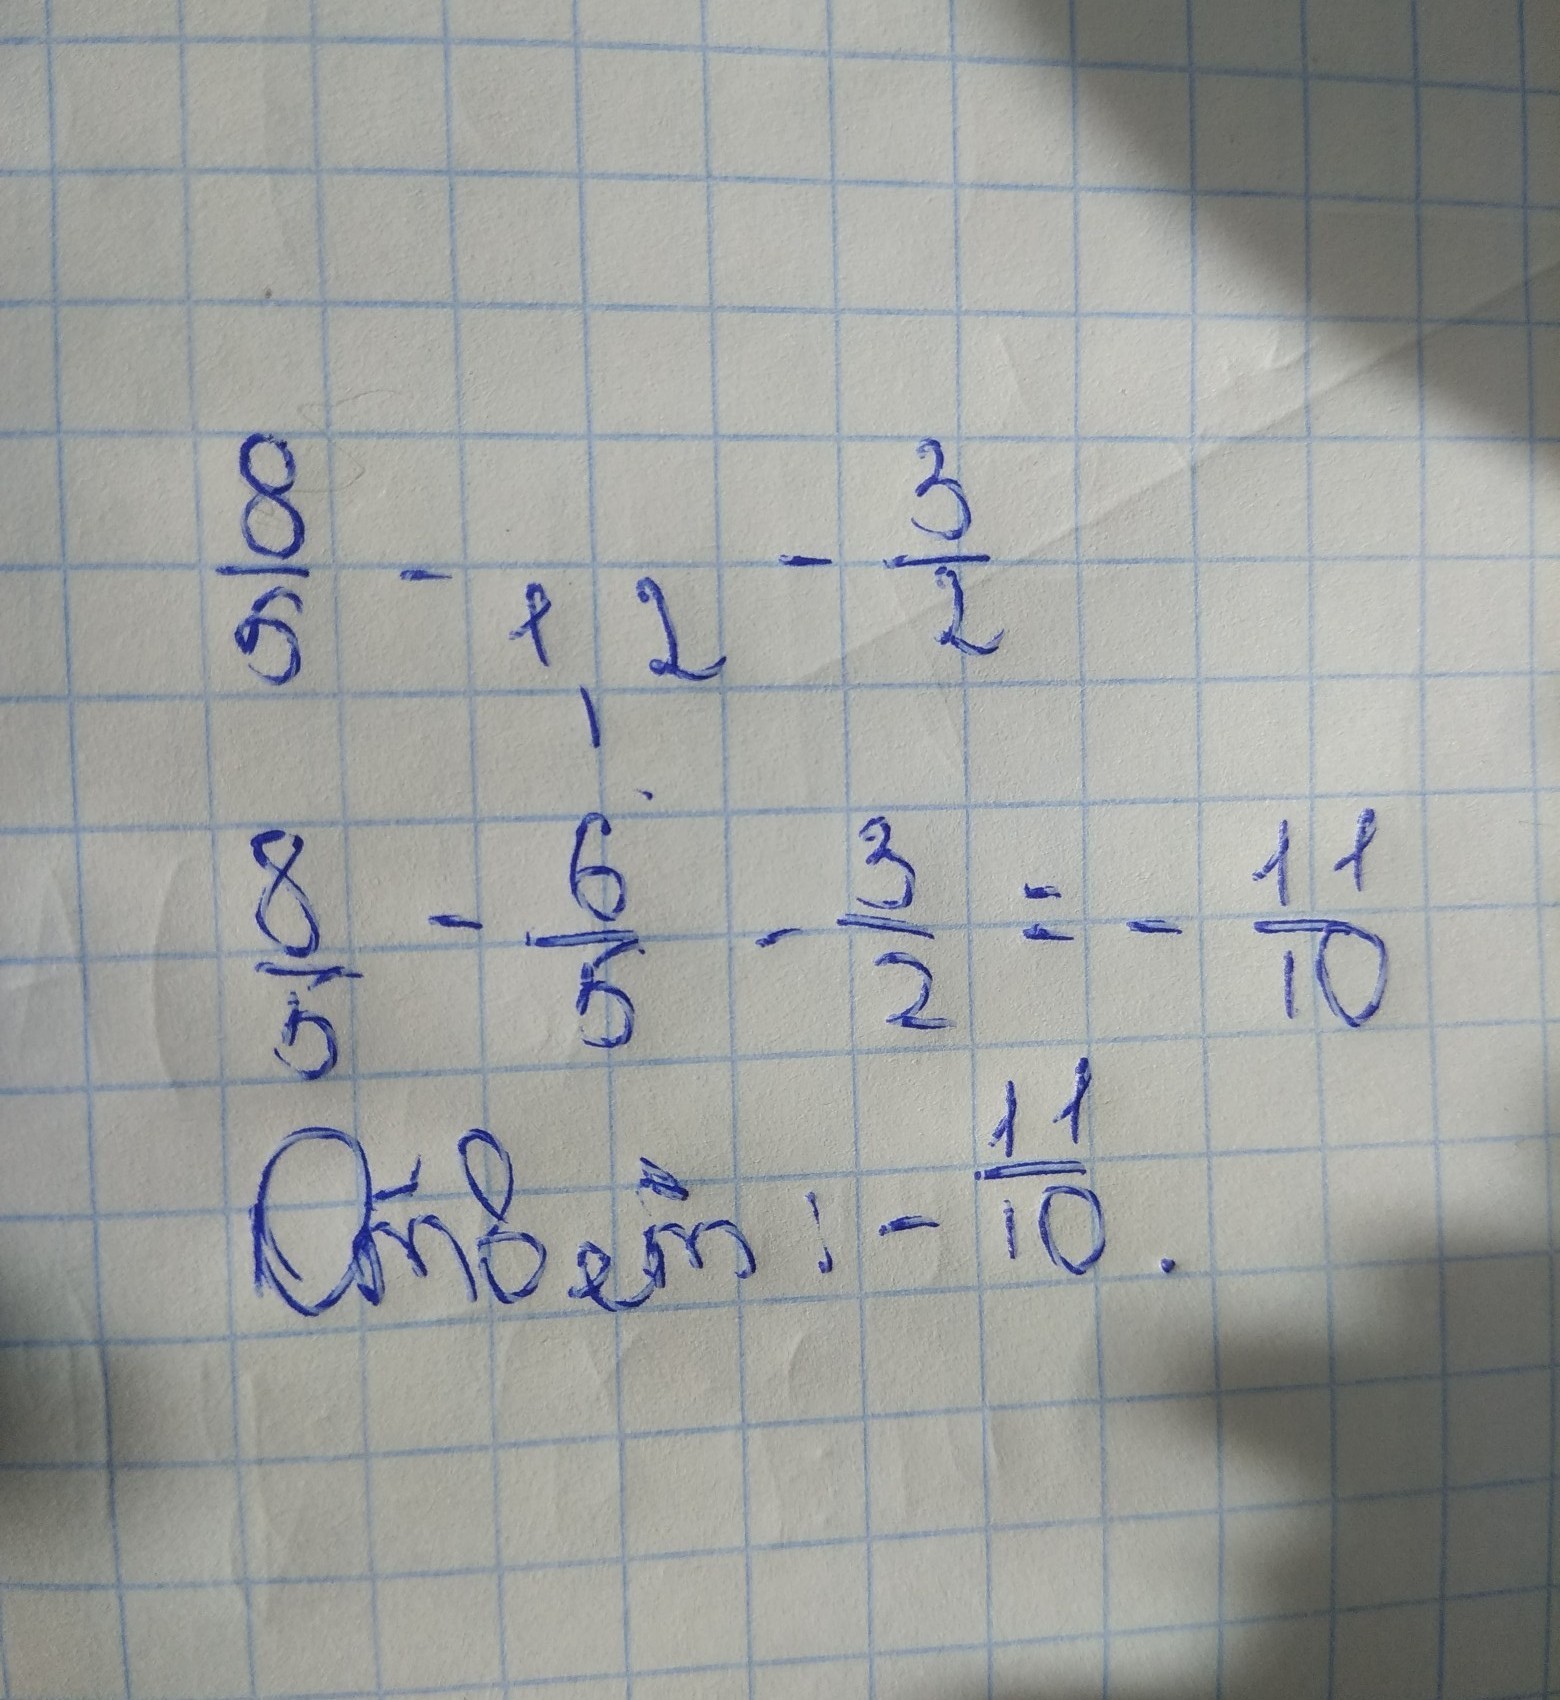 8/5 - 1,2 - 3/2
8/5 - 6/5 - 3/2 = - 11/10
Ответ: - 11/10.